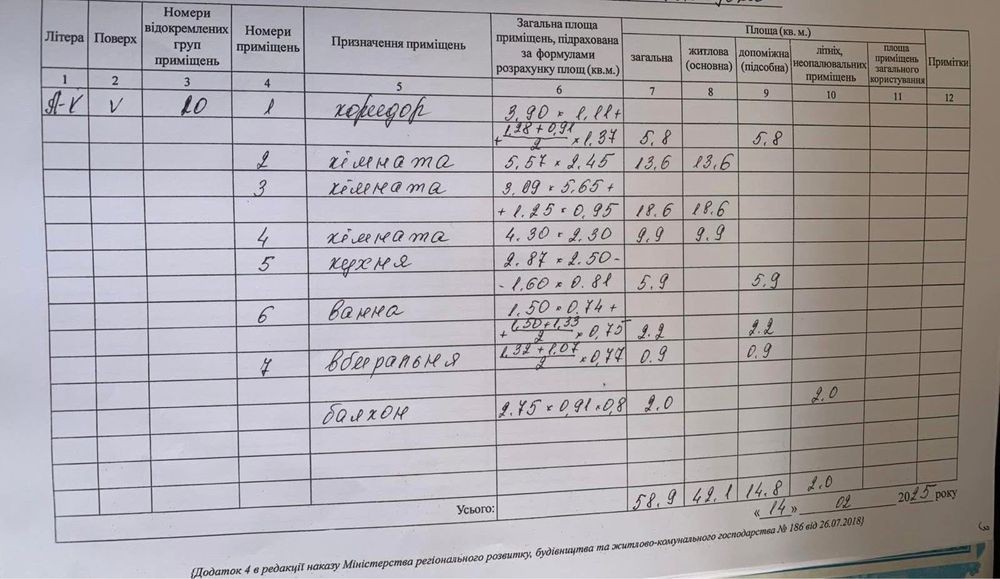 Літера Поверх Номери відокремлених груп приміщень Номери приміщень Призначення приміщень Загальна площа приміщень, підрахована за формулами розрахунку площ (кв.м.) Площа (кв. м.)
загальна житлова (основна) допоміжна (підсобна) літніх, неопалювальних приміщень площа приміщень загального користування Примітки
1 2 3 4 5 6 7 8 9 10 11 12
А-V V 20 1 коридор 3,90 × 1,11 +
+ 1,28 + 0,91 / 2 × 1,37 5,8 5,8
2 кімната 5,57 × 2,45 13,6 13,6
3 кімната 3,09 × 5,65 +
+ 1.25 × 0,95 18.6 18.6
4 кімната 4.30 × 2.30 9,9 9,9
5 кухня 2.87 × 2.50 -
- 1.60 × 0.81 5,9 5,9
6 ванна 1.50 × 0.74 +
+ 1,50 + 1,33 / 2 × 0,75 2.2 2.2
7 вбиральня 1,32 + 1,07 / 2 × 0,77 0.9 0.9
балкон 2.75 × 0,91 × 0,8 2.0 2.0
Усього: 58,9 42,1 14,8 2.0
« 14 » 02 2025 року
{Додаток 4 в редакції наказу Міністерства регіонального розвитку, будівництва та житлово-комунального господарства № 186 від 26.07.2018}